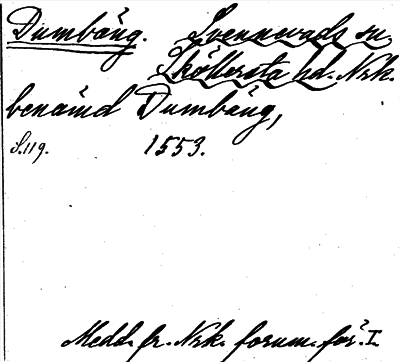 Dumbäng. Svennevads sn.
Sköllersta hd. Nrk.
benämd Dumbäng,
S. 119. 1553.
Medd. fr. Nrk. fornm. för. I